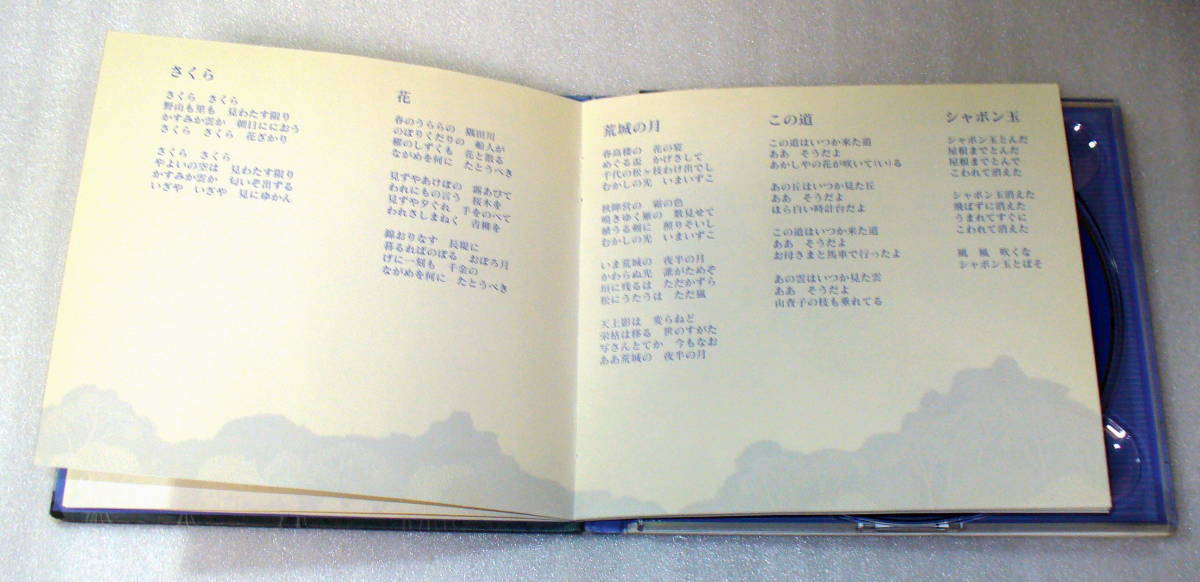 さくら
さくら　さくら
野山も里も　見わたす限り
かすみか雲か　朝日ににおう
さくら　さくら　花ざかり
さくら　さくら
やよいの空は　見わたす限り
かすみか雲か　匂いぞ出ずる
いざや　いざや　見にゆかん
花
春のうららの　隅田川
のぼりくだりの　船人が
櫂のしずくも　花と散る
ながめを何に　たとうべき
見ずやあけぼの　露あびて
われにもの言う　桜木を
見ずや夕ぐれ　手をのべて
われさしまねく　青柳を
錦おりなす　長堤に
暮るればのぼる　おぼろ月
げに一刻も　千金の
ながめを何に　たとうべき
荒城の月
春高楼の　花の宴
めぐる盃　かげさして
千代の松ヶ枝わけ出でし
むかしの光　いまいずこ
秋陣営の　霜の色
鳴きゆく雁の　数見せて
植うる剣に　照りそいし
むかしの光　いまいずこ
いま荒城の　夜半の月
かわらぬ光　誰がためぞ
垣に残るは　ただかずら
松にうたうは　ただ嵐
天上影は　変らねど
栄枯は移る　世のすがた
写さんとてか　今もなお
ああ荒城の　夜半の月
この道
この道はいつか来た道
ああ　そうだよ
あかしやの花が咲いて(い)る
あの丘はいつか見た丘
ああ　そうだよ
ほら白い時計台だよ
この道はいつか来た道
ああ　そうだよ
お母さまと馬車で行ったよ
あの雲はいつか見た雲
ああ　そうだよ
山査子の枝も垂れてる
シャボン玉
シャボン玉とんだ
屋根までとんだ
屋根までとんで
こわれて消えた
シャボン玉消えた
飛ばずに消えた
うまれてすぐに
こわれて消えた
風　風　吹くな
シャボン玉とばそ